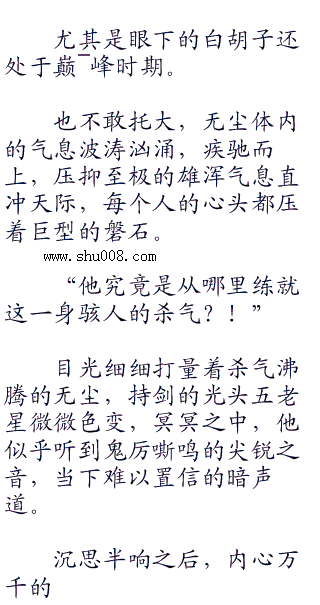 尤其是眼下的白胡子还
处于巅峰时期。
也不敢托大，无尘体内
的气息波涛汹涌，疾驰而
上，压抑至极的雄浑气息直
冲天际，每个人的心头都压
着巨型的磐石。
www.shu008.com
“他究竟是从哪里练就
这一身骇人的杀气？！”
目光细细打量着杀气沸
腾的无尘，持剑的光头五老
星微微色变，冥冥之中，他
似乎听到鬼厉嘶鸣的尖锐之
音，当下难以置信的暗声
道。
沉思半响之后，内心万
千的